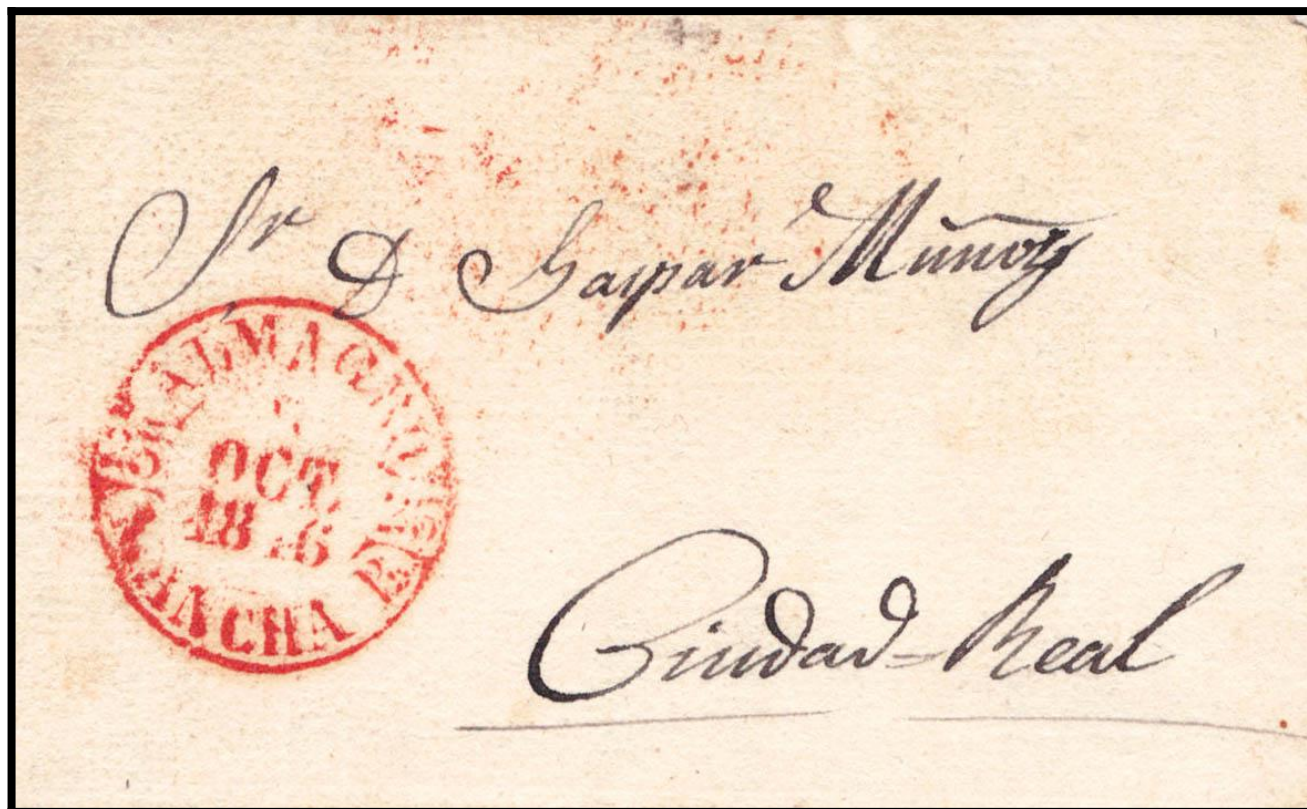 Sr D Gaspar Muñoz
ALMAGRO
OCT.
18 6
MANCHA
Ciudad=Real